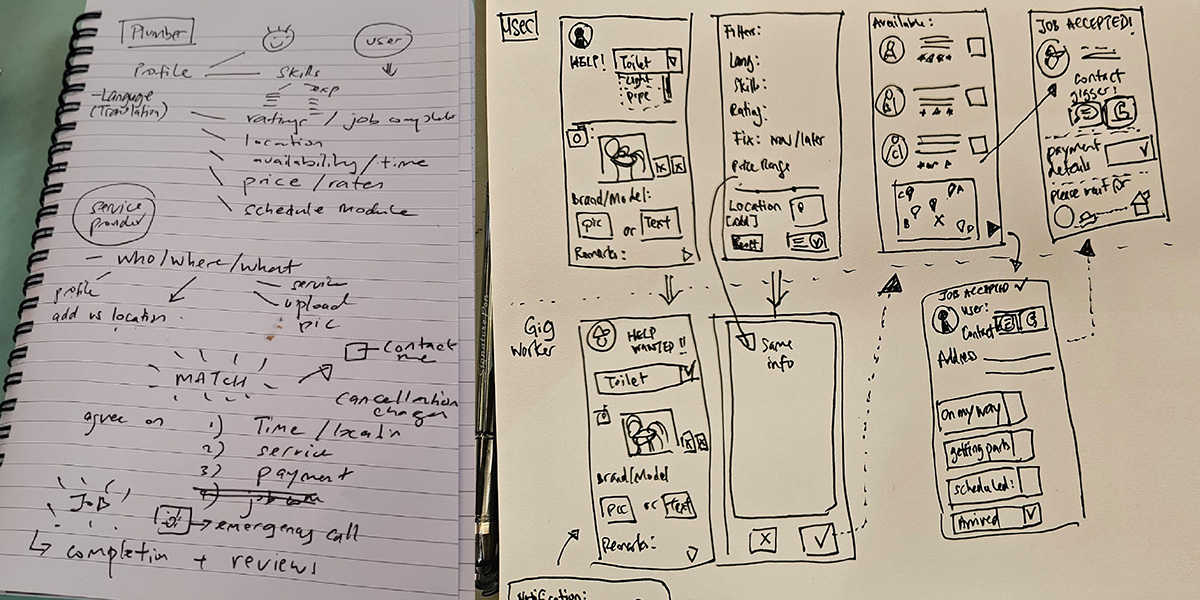 Plumber
user
Profile
skills
exp
- Language
(Translation)
ratings / job complete
location
availability/time
price/rates
schedule module
service
provider
- who/where/what
profile
- service
add us location
- upload
pic
Contact
me
MATCH
cancellation
charges
agree on
1) Time/locatn
2) service
3) payment
4)
JOB
emergency call
completion + reviews
user
HELP!
Toilet
Light
pipe
Brand/Model:
pic or Text
Remarks:
Filter:
Lang:
Skill:
Rating:
Fix: now/later
Price Range
Location
[add]
Available:
A
B
C
C
A
B
X
D
JOB ACCEPTED!
Contact
gigger:
payment
details
please wait for
Gig
Worker
HELP
WANTED!!
Toilet
Brand/Model
pic or text
Remarks:
Same
info
X
JOB ACCEPTED
User:
Contact
Address
on my way
getting parts
scheduled:
Arrived
Notification:
SignaturePen